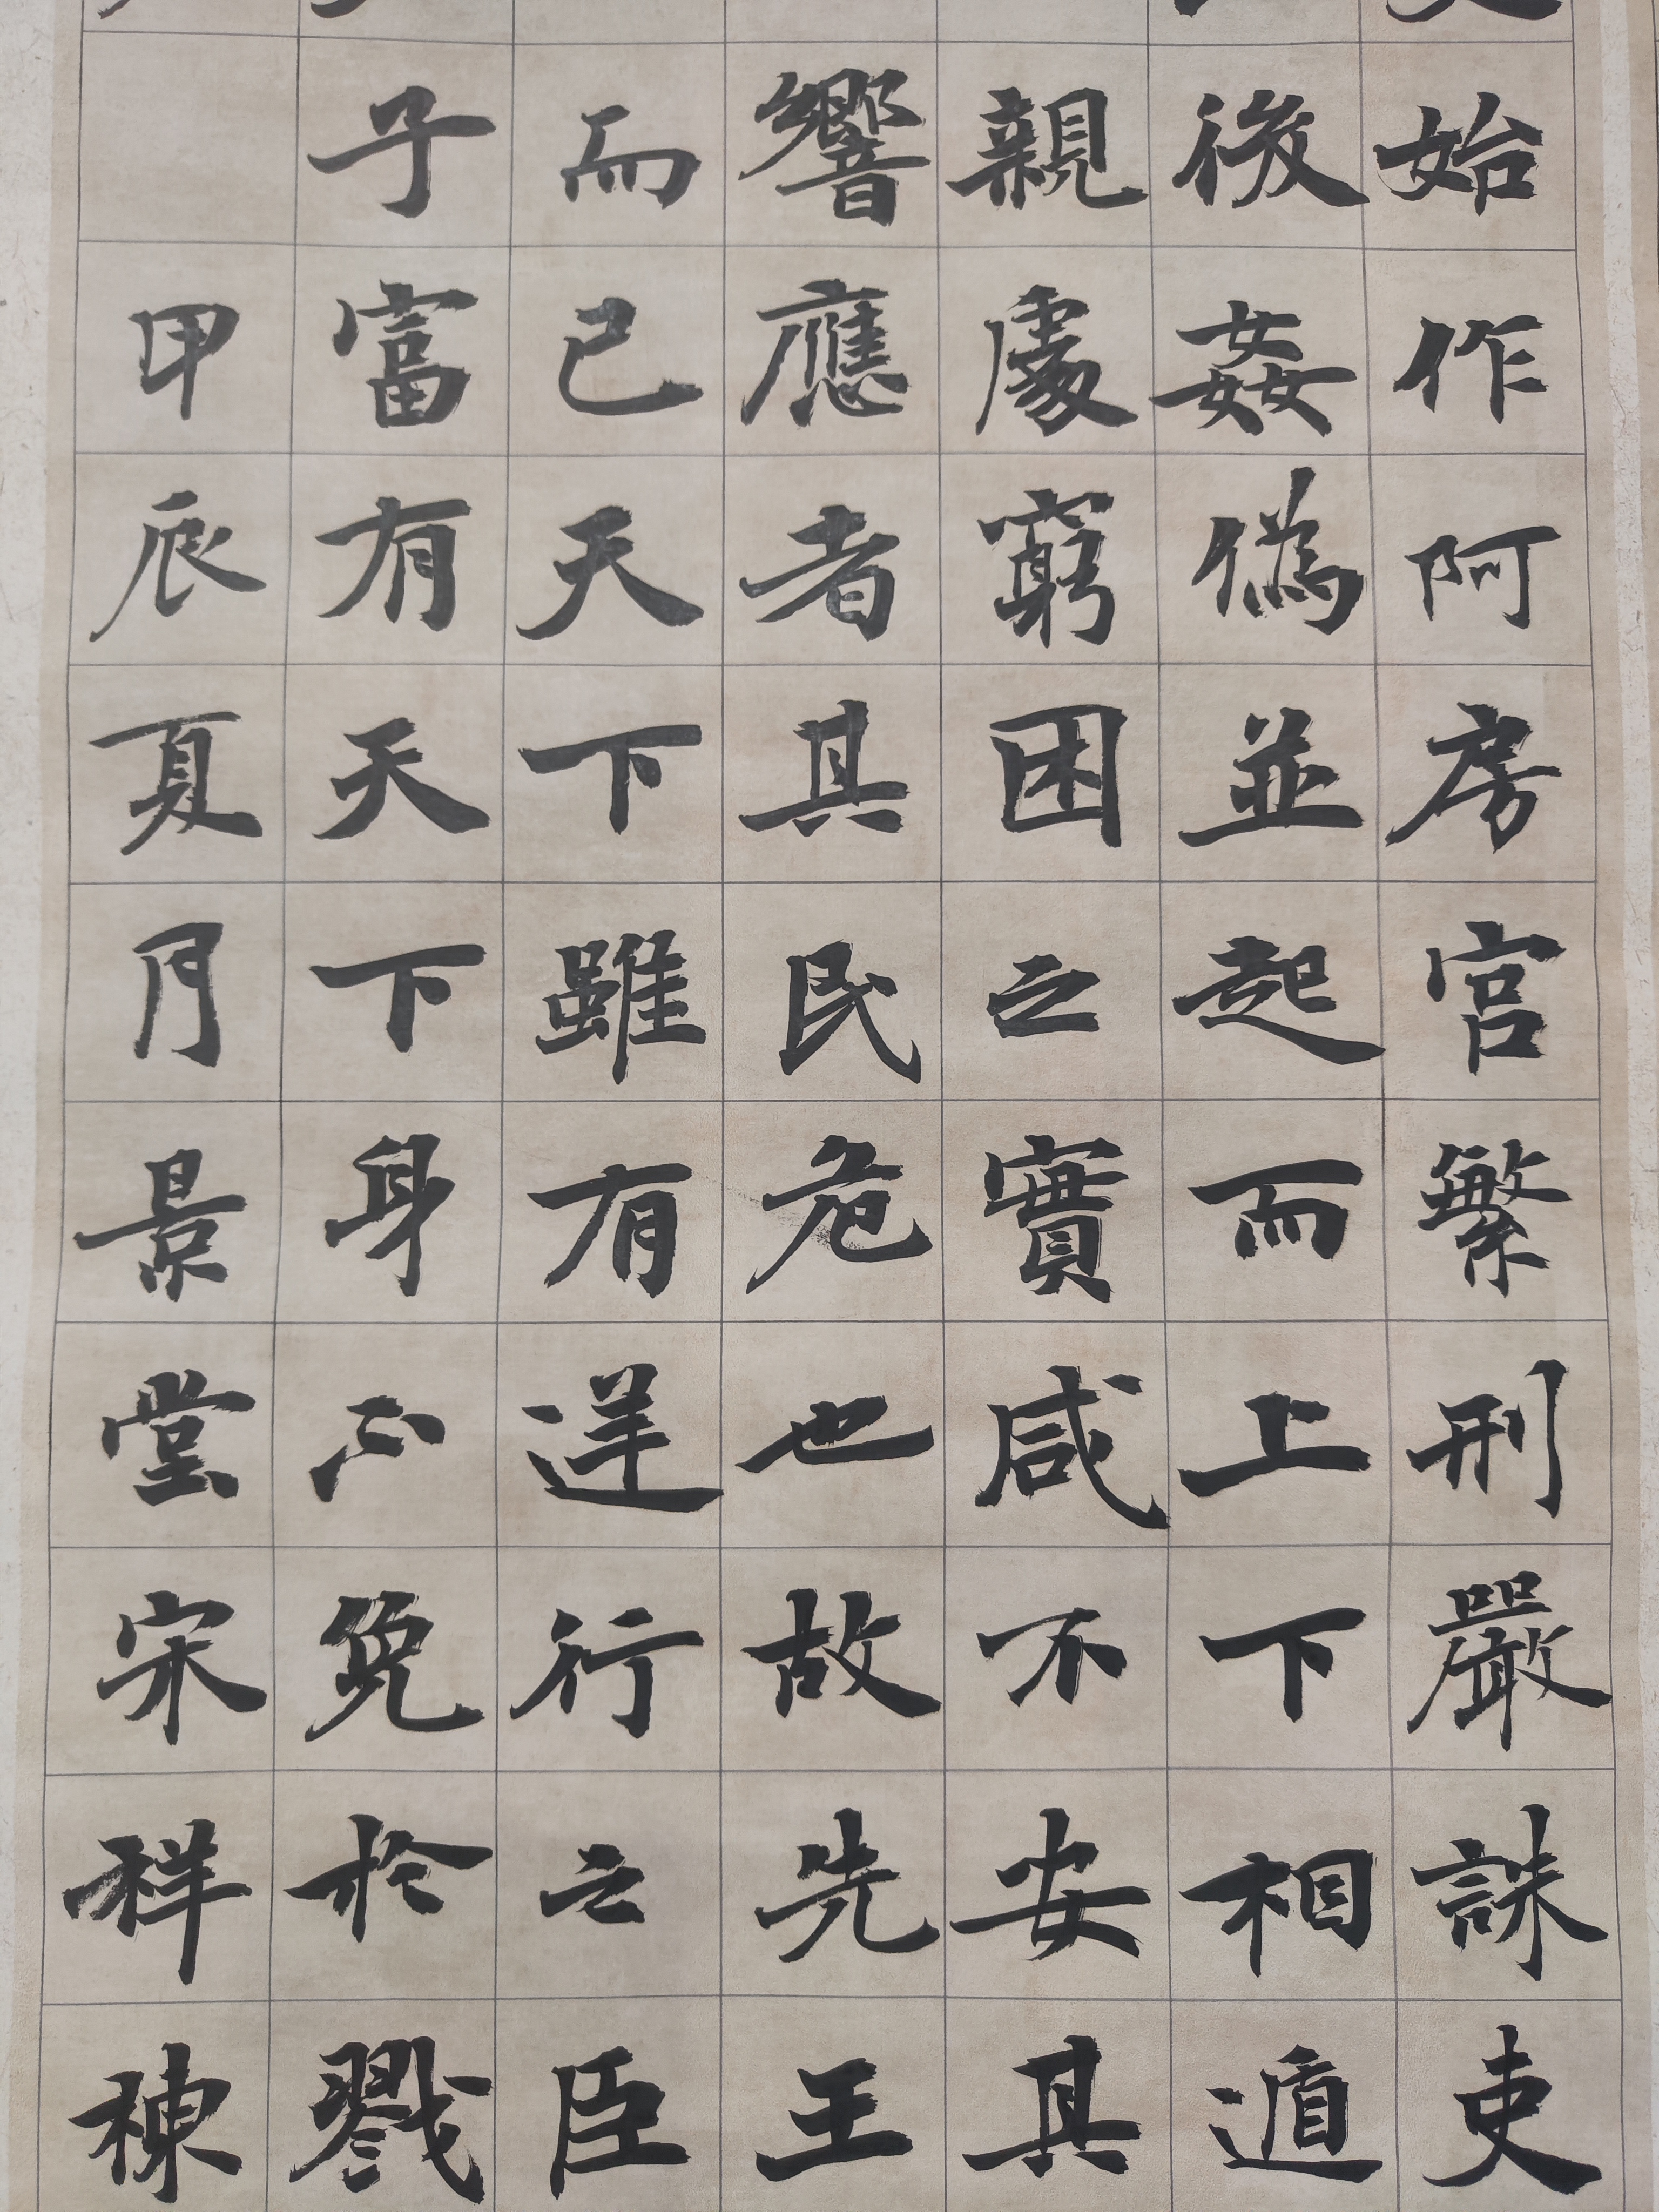 始作阿房宮繁刑嚴誅吏
後姦偽並起而上下相遁
親處窮困之實咸不安其
響應者其民危也故先王
而已天下雖有逆行之臣
子富有天下身不免於戮
甲辰夏門景堂宋祥棟